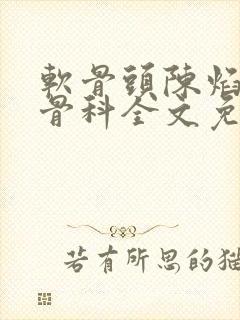 軟骨頭陳焰
骨科全文免
若有所思的猫